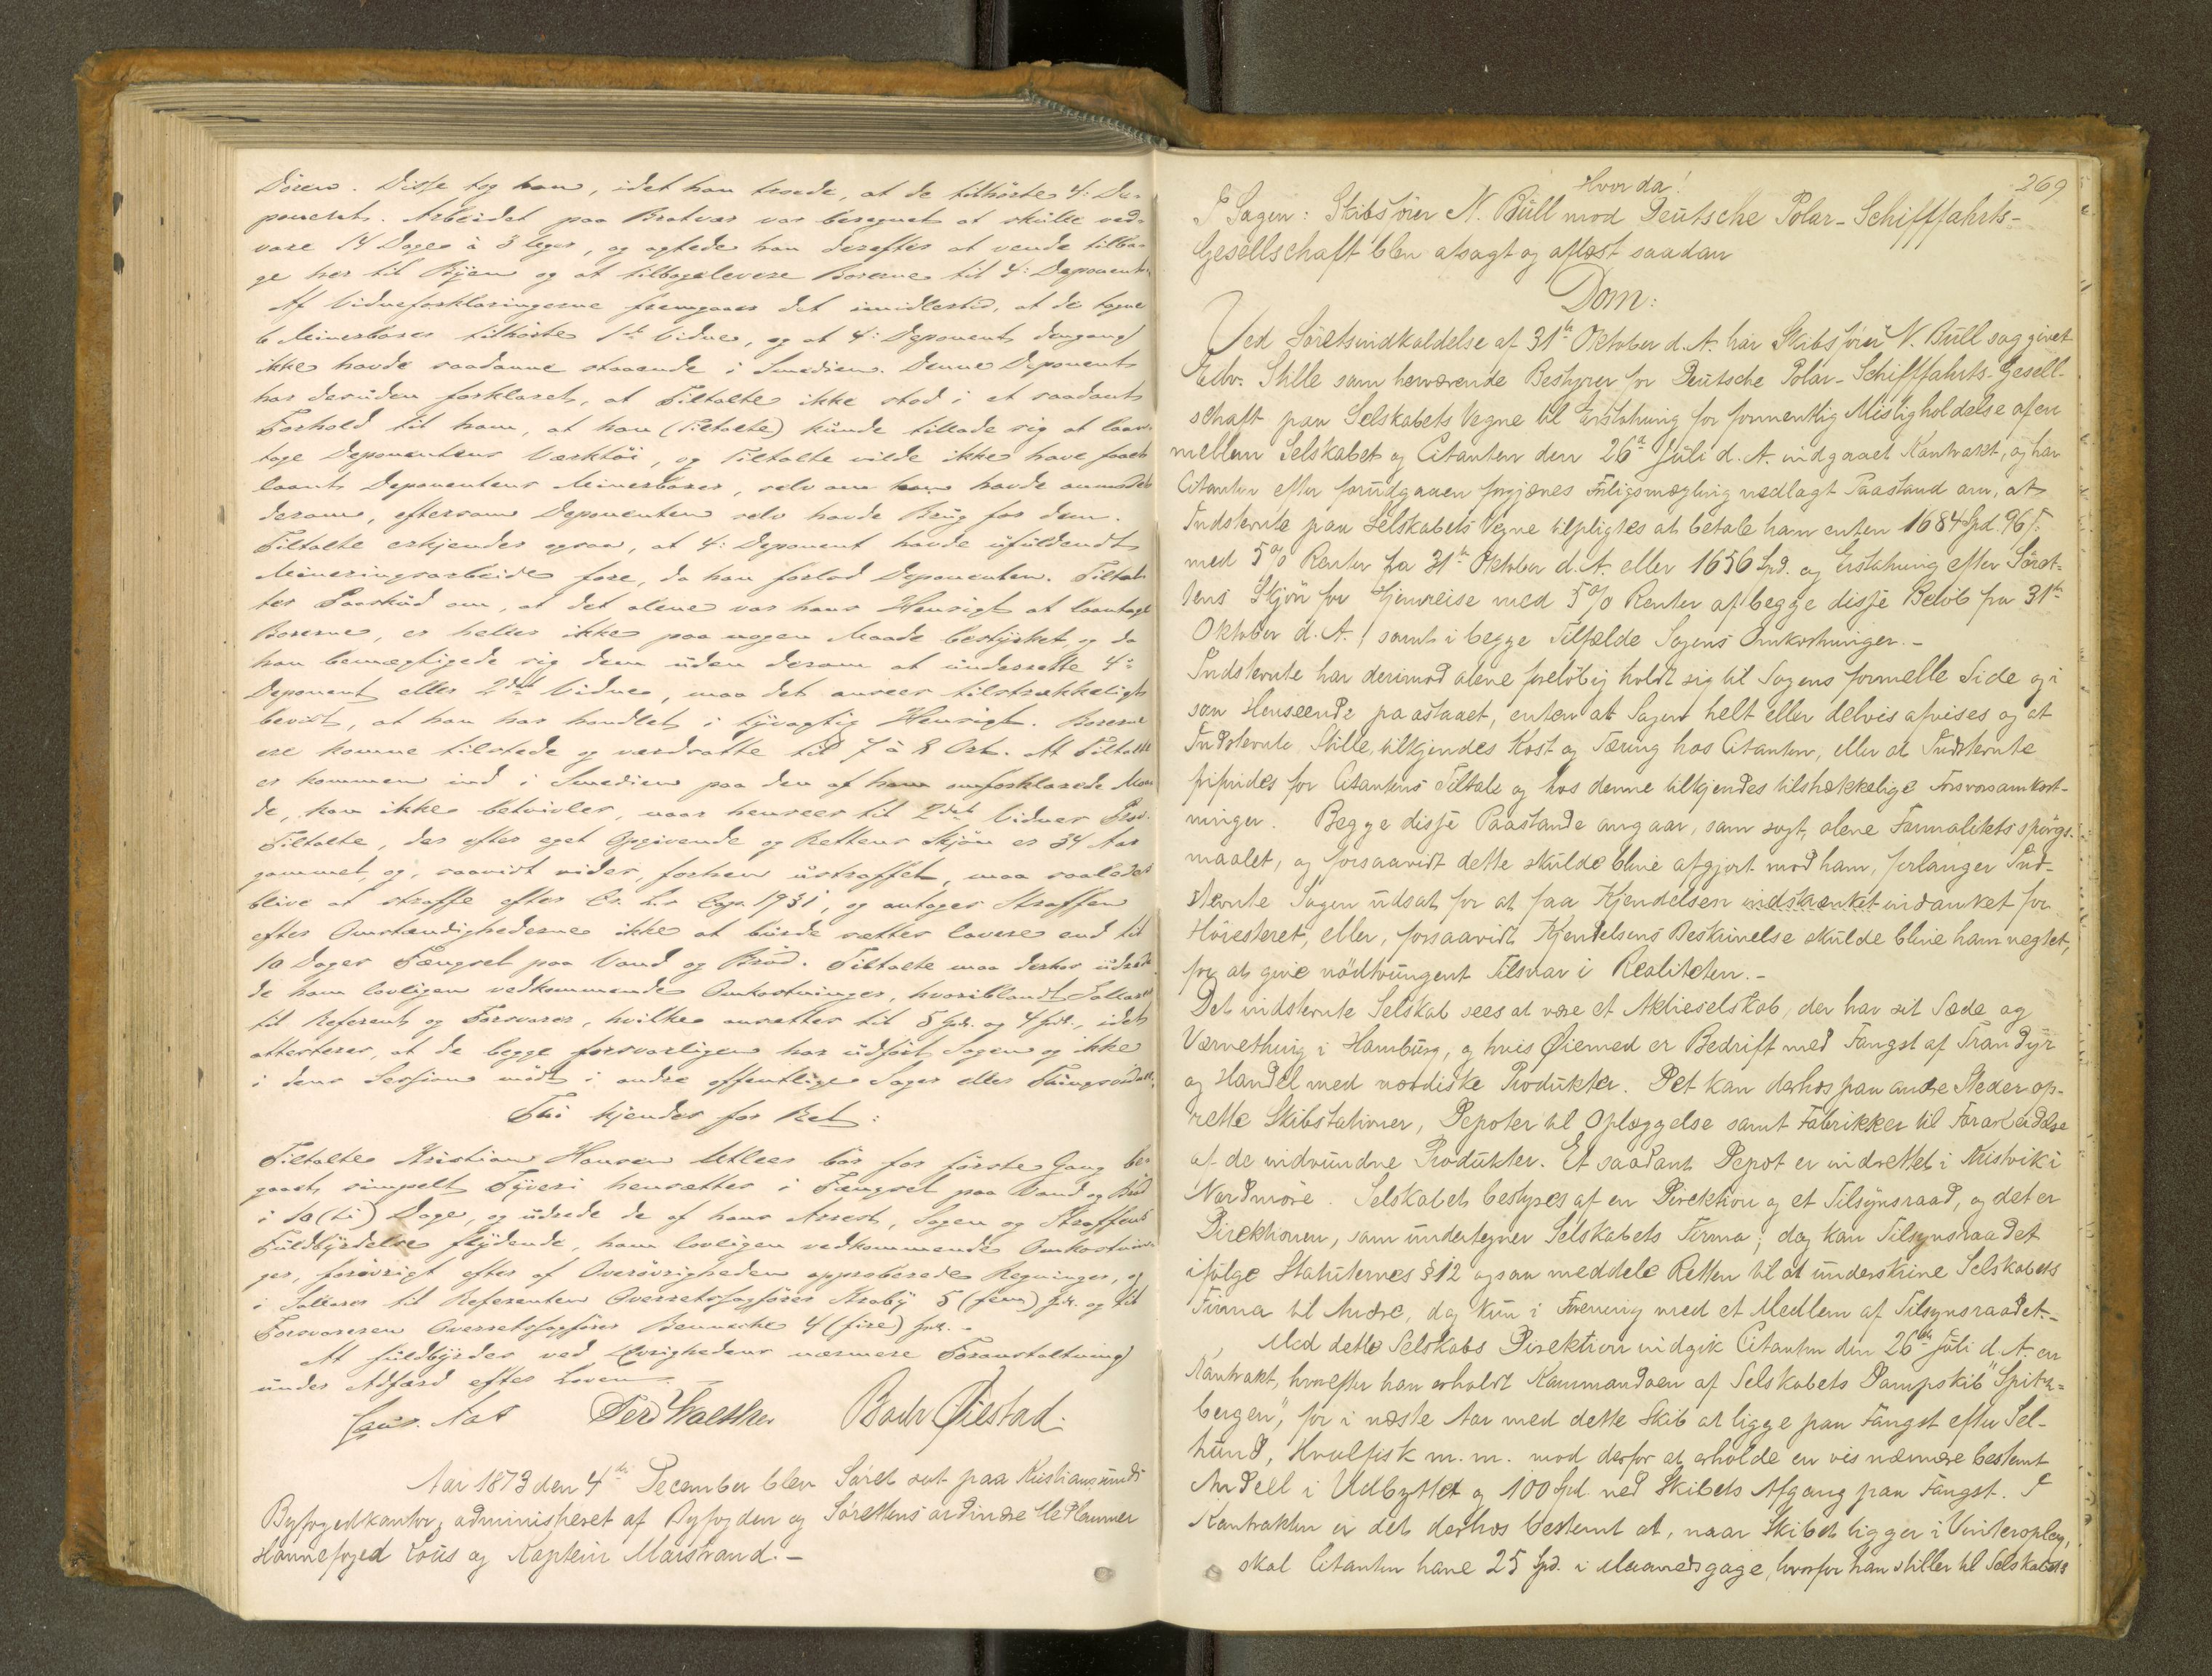 Dören. Disse tog han, idet han troede, at de tilhörte 4: De-
ponent. Arbeidet paa Bratvær var beregnet at skulle ved-
vare 14 Dage à 3 Uger, og agtede han derefter at vende tilba-
ge her til Byen og at tilbagelevere Borerne til 4: Deponent.
Af Vidneforklaringerne fremgaaer det imidlertid, at de tagne
6 Minerborer tilhörte 1ste Vidne, og at 4: Deponent dengang
ikke havde saadanne staaende i Smedien. Denne Deponent
har desuden forklaret, at Tiltalte ikke stod i et saadant
Forhold til ham, at han (Tiltalte) kunde tillade sig at laan-
tage Deponentens Værktöi, og Tiltalte vilde ikke have faaet
laant Deponentens Minerborer, selv om han havde anmodet
derom, eftersom Deponenten selv havde Brug for dem.
Tiltalte erkjender ogsaa, at 4: Deponent havde ufuldendt
Mineringsarbeide fore, da han forlod Deponenten. Tiltal-
tes Paaskud om, at det alene var hans Hensigt at laantage
Borerne, er heller ikke paa nogen Maade bestyrket, og da
han bemægtigede sig dem uden derom at underrette 4:
Deponent eller 2det Vidne, maa det ansees tilstrækkeligt
bevist, at han har handlet i tyvagtig Hensigt. Borerne
ere komne tilstede og værdsatte til 7 à 8 Ort. At Tiltalte
er kommen ind i Smedien paa den af ham omforklarede Maa-
de, kan ikke betvivles, naar henseer til 2det Vidnes Prov.
Tiltalte, der efter eget Opgivende og Rettens Skjön er 34 Aar
gammel, og, saavidt vides, forhen ustraffet, maa saaledes
blive at straffe efter Cr. L.s Cap. 19 § 1, og antages Straffen
efter Omstændighederne ikke at burde sættes lavere end til
10 Dages Fængsel paa Vand og Bröd. Tiltalte maa derhos udre-
de ham lovligen vedkommende Omkostninger, hvoriblandt Salær
til Referent og Forsvarer, hvilke ansættes til 5 Spd. og 4 Spd., idet
attesteres, at de begge forsvarligen har udfört Sagen og ikke
i dens Session mödt i andre offentlige Sager eller Thingsvidner.
Thi kjendes for Ret:
Tiltalte Kristian Hansen bör for förste Gang be-
gaaet simpelt Tyveri hensættes i Fængsel paa Vand og Bröd
i 10 (ti) Dage, og udrede de af hans Arrest, Sagen og Straffens
Fuldbyrdelse flydende, ham lovligen vedkommende Omkostnin-
ger, foröv­rigt efter af Överövrigheden approberede Regninger, og
i Salær til Referenten Overretssagförer Kraby 5 (fem) Spd. og til
Forsvareren Overretssagförer Bennecke 4 (fire) Spd. -
At fuldbyrdes ved Övrighedens nærmere Foranstaltning
under Adfærd efter Loven.
Ferd Bach Øiestad.
Aar 1873 den 4de December blev Söret sat paa Kristiansunds
Byfogedkontor, administreret af Byfogden og Sörettens ordinære Meddommer
Havnefoged Lous og Kaptein Maistrand. -
269
Hvorda!
I Sagen: Skibsförer N. Büll mod Deutsche Polar-Schifffahrts-
Gesellschaft blev afsagt og aflæst saadan
Dom:
Ved Söretsindkaldelse af 31te Oktober d. A. har Skibsförer N. Büll saggivet
Edv. Stille som herværende Bestyrer for Deutsche Polar-Schifffahrts-Gesell-
schaft paa Selskabets Vegne til Erstatning for formentlig Misligholdelse af en
mellem Selskabet og Citanten den 26de Juli d. A. indgaaet Kontrakt, og har
Citanten efter forudgaaen forgjæves Forligsmægling nedlagt Paastand om, at
Indstevnte paa Selskabets Vegne tilpligtes at betale ham enten 1684 Spd. 96 s.
med 5 % Renter fra 31te Oktober d. A. eller 1656 Spd. og Erstatning efter Söret-
tens Skjön for Hjemreise med 5 % Renter af begge disse Belöb fra 31te
Oktober d. A., samt i begge Tilfælde Sagens Omkostninger. -
Indstevnte har derimod alene forelöbig holdt sig til Sagens formelle Side og i
saa Henseende paastaaet, enten at Sagen helt eller delvis afvises og at
Indstevnte, Stille, tilkjendes Kost og Tæring hos Citanten, eller at Indstevnte
frifindes for Citantens Tiltale og hos denne tilkjendes tilstrækkelige Forsvarsomkost-
ninger. Begge disse Paastande angaar, som sagt, alene Formalitetsspörgs-
maalet, og forsaavidt dette skulde blive afgjort mod ham, forlanger Ind-
stevnte Sagen udsat for at faa Kjendelsen indstænket indanket for
Höiesteret, eller, forsaavidt Kjendelsens Beskrivelse skulde blive ham negtet,
for at give nödtvungent Tilsvar i Realiteten. -
Det indstevnte Selskab sees at være et Aktieselskab, der har sit Sæde og
Værnething i Hamburg, og hvis Øiemed er Bedrift med Fangst af Trandyr
og Handel med nordiske Produkter. Det kan derhos paa andre Steder op-
rette Skibstationer, Depoter til Oplæggelse samt Fabrikker til Forarbeidelse
af de indvundne Produkter. Et saadant Depot er indrettet i Kristvik i
Nordmöre. Selskabet bestyres af en Direktion og et Tilsynsraad, og det er
Direktionen, som undertegner Selskabets Firma; dog kan Tilsynsraadet
ifölge Statuternes § 12 ogsaa meddele Retten til at underskrive Selskabets
Firma til Andre, dog kun i Forening med et Medlem af Tilsynsraadet. -
Med dette Selskabs Direktion indgik Citanten den 26de Juli d. A. en
Kontrakt, hvorefter han erholdt Kommandoen af Selskabets Dampskib "Spitz-
bergen", for i næste Aar med dette Skib at ligge paa Fangst efter Sel-
hund, Hvalfisk m. m. mod derfor at erholde en vis nærmere bestemt
Andeel i Udbyttet og 100 Spd. ved Skibets Afgang paa Fangst. I
Kontrakten er det derhos bestemt at, naar Skibet ligger i Vinteroplag,
skal Citanten have 25 Spd. i Maanedsgage, hvorfor han stiller til Selskabets